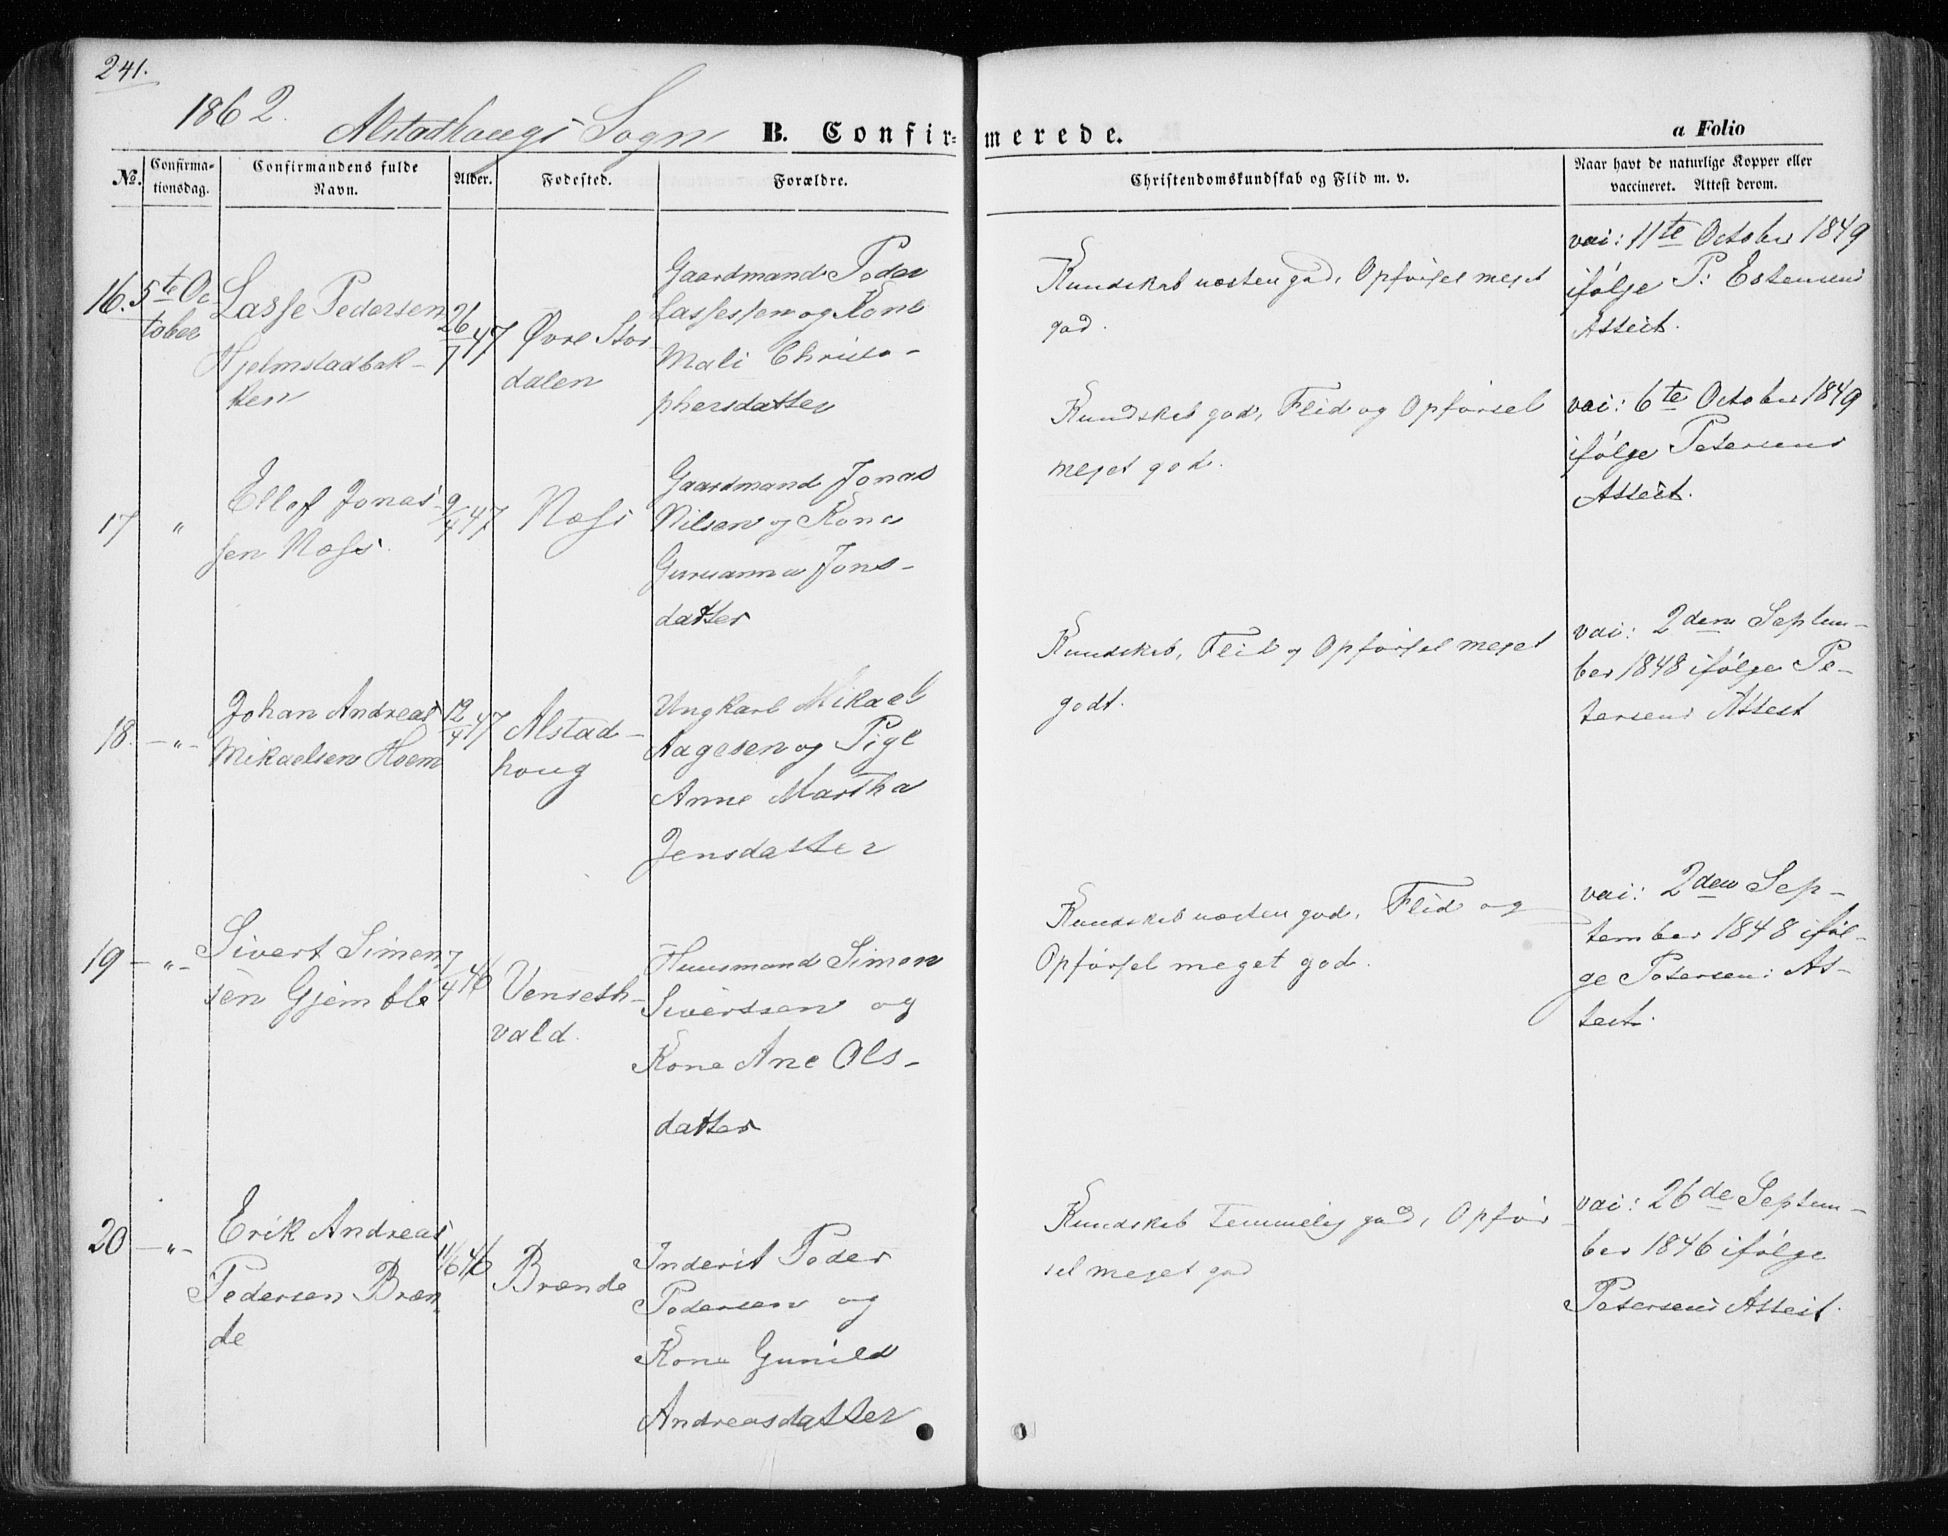 241.
1862. Alstadhougs Sogn B. Confirmerede. a Folio
No. Confirmationsdag. Confirmandens fulde Navn. Alder. Fødested. Forældre. Christendomskundskab og Flid m. v. Naar havt de naturlige Kopper eller vaccineret. Attest derom.
16. 5te Oc-
tober
Lasse Pedersen
Hjelmstadbak-
ken
26/7 47
Øvre Stor-
dalen
Gaardmand Peder
Lassessen og Kone
Mali Christo-
phersdatter
Kundskab næsten god, Opførsel meget
god.
vai: 11te October 1849
ifølge P: Estensens
Attest.
17 "
Ellef Jonas-
sen Næss.
9/4 47
Næss
Gaardmand Jonas
Nilsen og Kone
Guruanna Jons-
datter
Kundskab god, Flid og Opførsel
meget god.
vai: 6te October 1849
ifølge Petersens
Attest.
18. -"-
Johan Andreas
Mikaelsen Hoem
12/4 47
Alstad-
houg
Ungkarl Mikael
Aagesen og Pige
Anne Martha
Jensdatter
Kundskab, Flid og Opførsel meget
godt.
vai: 2den Septem-
ber 1848 ifølge Pe-
tersens Attest
19 -"-
Sivert Simon-
sen Gjemble
7/4 46
Venseth-
vald.
Huusmand Simon
Sivertsen og
Kone Ane Ols-
datter
Kundskab næsten god, Flid og
Opførsel meget god.
vai: 2den Sep-
tember 1848 iføl-
ge Petersens At-
test.
20 -"-
Erik Andreas
Pedersen Bræn-
de
11/6 46
Brænde
Inderst Peder
Pedersen og
Kone Gunild
Andreasdatter
Kundskab temmelig god, Opfør-
sel meget god
vai: 26de Septem-
ber 1846 ifølge
Petersens Attest.